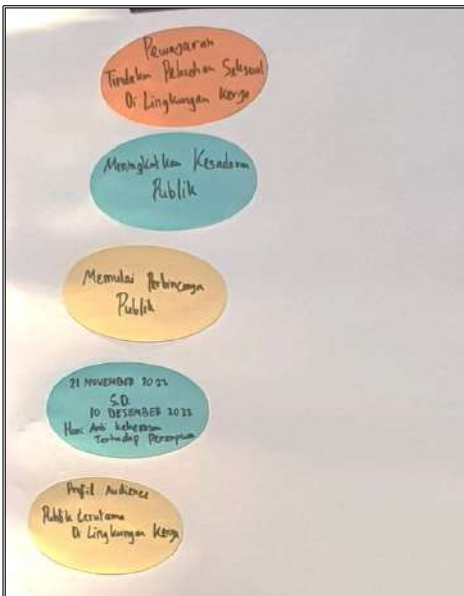 Pewajaran
Tindakan Pelecehan Seksual
Di Lingkungan Kerja
Meningkatkan Kesadaran
Publik
Memulai Perbincangan
Publik
21 NOVEMBER 2022
S.D.
10 DESEMBER 2022
Hari Anti kekerasan
Terhadap Perempuan
Profil Audience
Publik terutama
Di Lingkungan Kerja